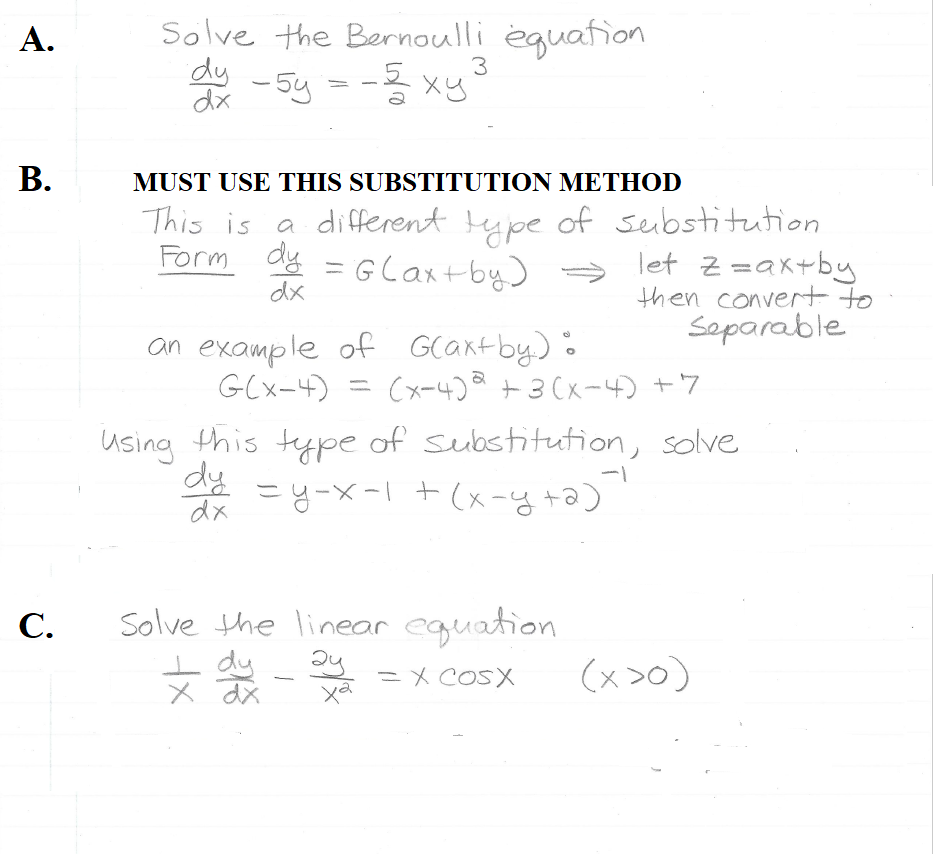 A. Solve the Bernoulli equation
dy/dx - 5y = - 5/2 xy³
B. MUST USE THIS SUBSTITUTION METHOD
This is a different type of substitution
Form dy/dx = G(ax+by) ⇒ let z = ax+by
then convert to
separable
an example of G(ax+by):
G(x-4) = (x-4)² + 3(x-4) + 7
Using this type of substitution, solve
dy/dx = y-x-1 + (x-y+2)⁻¹
C. Solve the linear equation
1/x dy/dx - 2y/x² = x cosx (x>0)